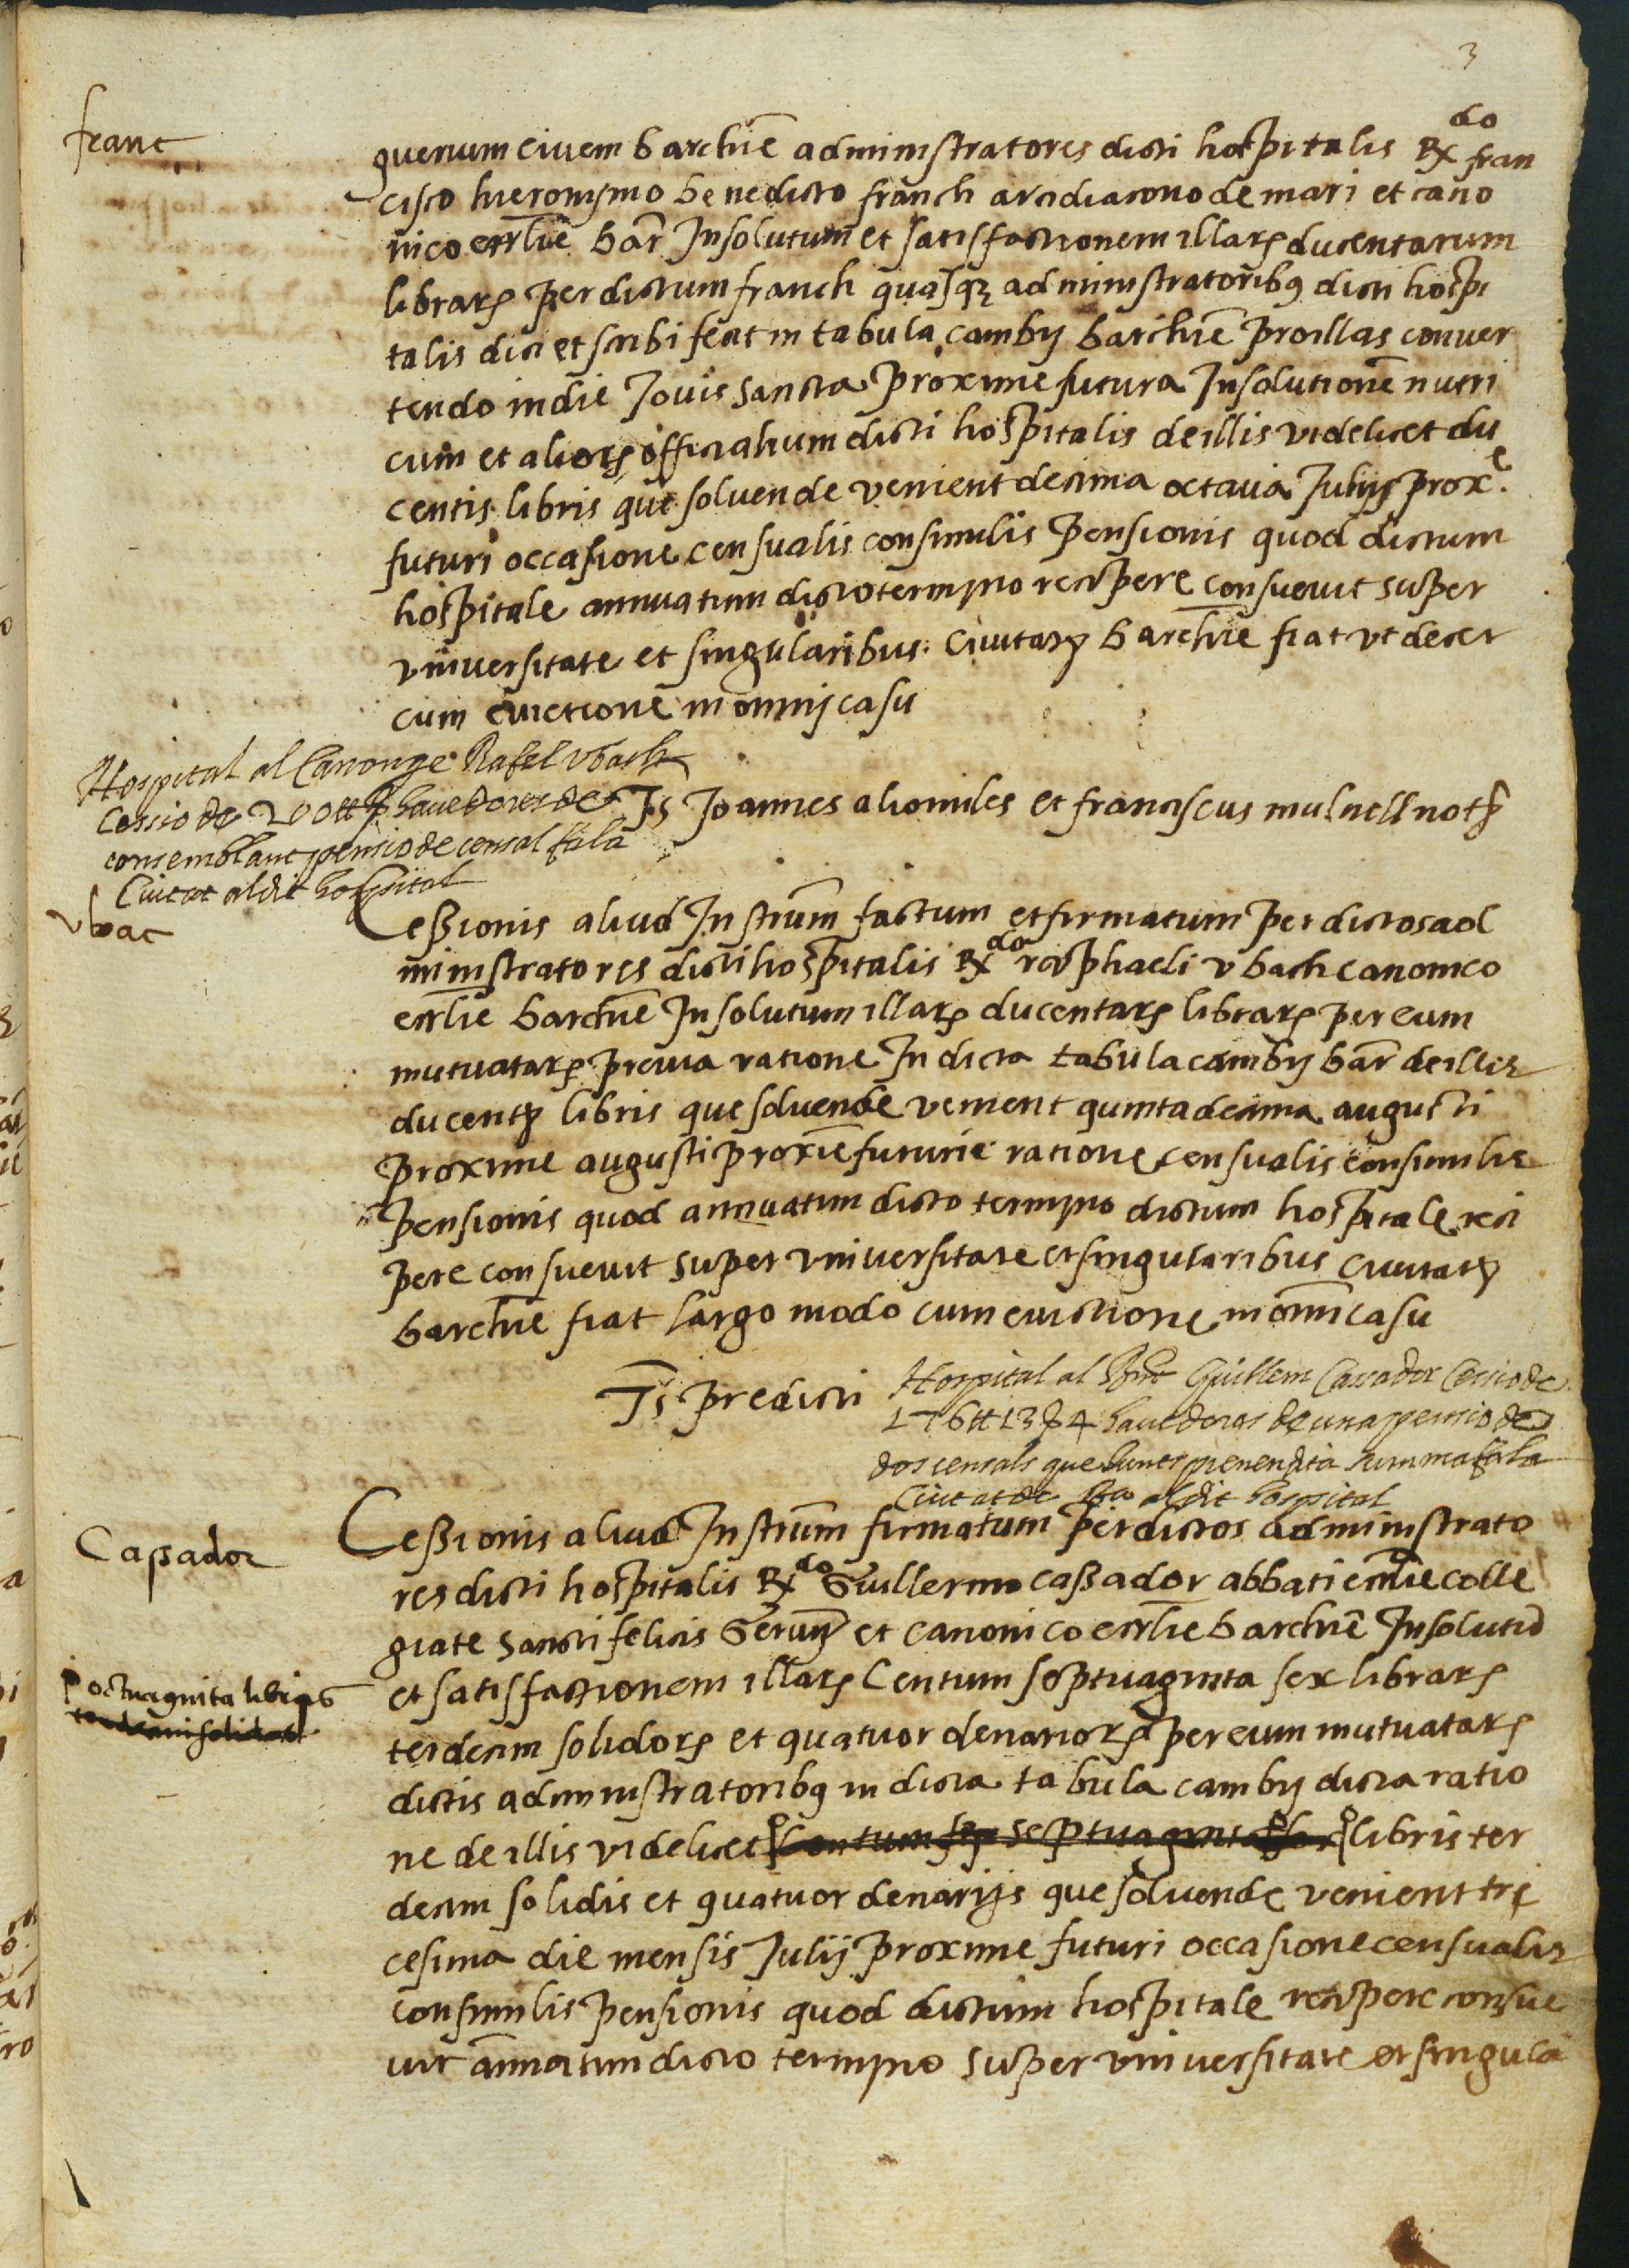 3
franc
querium ciuem barchne administratores dicti hospitalis Rx do fran
cisco hieronymo benedicto franch archidiacono de mari et cano
nico eccliae bar Insolutum et satisfactionem illarum ducentarum
librarum per dictum franch quasque administratoribus dicti hospi
talis dici et scribi feat in tabula cambij barchne pro illas conuer
tendo in die Jouis sancta proxime futura Insolutione nutri
cum et aliorum officialium dicti hospitalis de illis videlicet du
centis libris que soluende venient decima octaua Julij prox.e
futuri occasione censualis consimilis pensionis quod dictum
hospitale annuatim dicto termyno recipere consueuit super
vniuersitate et singularibus Ciuitatis barchne fiat vt decet
cum euictione in omnj casu
Hospital al Canonge Rafel Vbach
Cessio de 200 ll hauedores de
consemblant pensio de censal fa la
Ciutat al dit hospital
Ts Joannes aliomiles et franciscus mulnell notr
vbac
Cessionis aliud Instrum factum et firmatum per dictos ad
ministratores dicti hospitalis Rx do raphaeli vbach canonico
ecclie barchne Insolutum illarum ducentarum librarum per eum
mutuatarum previa ratione In dicta tabula cambij bar de illis
ducentis libris que soluende venient quinta decima augusti
proxime augusti proxime futurie ratione censualis consimilis
pensionis quod annuatim dicto termyno dictum hospitale reci
pere consueuit super vniuersitate et singularibus Ciuitatis
barchne fiat largo modo cum euictione in omni casu
Ts predicti
Hospital al Rnt Guillem Cassador Cessio de
176 ll 13 s 4 hauedores de una pensio de
dos censals que junts prenen dita summa fa la
Ciutat de Ba al dit hospital
Cassador
Cessionis aliud Instrum firmatum per dictos administrato
res dicti hospitalis Rx do Guillermo cassador abbati ecclie colle
giate sancti felicis Gerun et canonico ecclie barchne Insolutum
et satisfactionem illarum Centum septuaginta sex librarum
octuaginta libris
terdecim solidis
terdecim solidorum et quatuor denariorum per eum mutuatarum
dictis administratoribus in dicta tabula cambij dicta ratio
ne de illis videlicet centum sep septuaginta sex libris ter
decim solidis et quatuor denarijs que soluende venient tri
cesima die mensis Julij proxime futuri occasione censualis
consimilis pensionis quod dictum hospitale recipere consue
uit annuatim dicto termyno super vniuersitate et singula